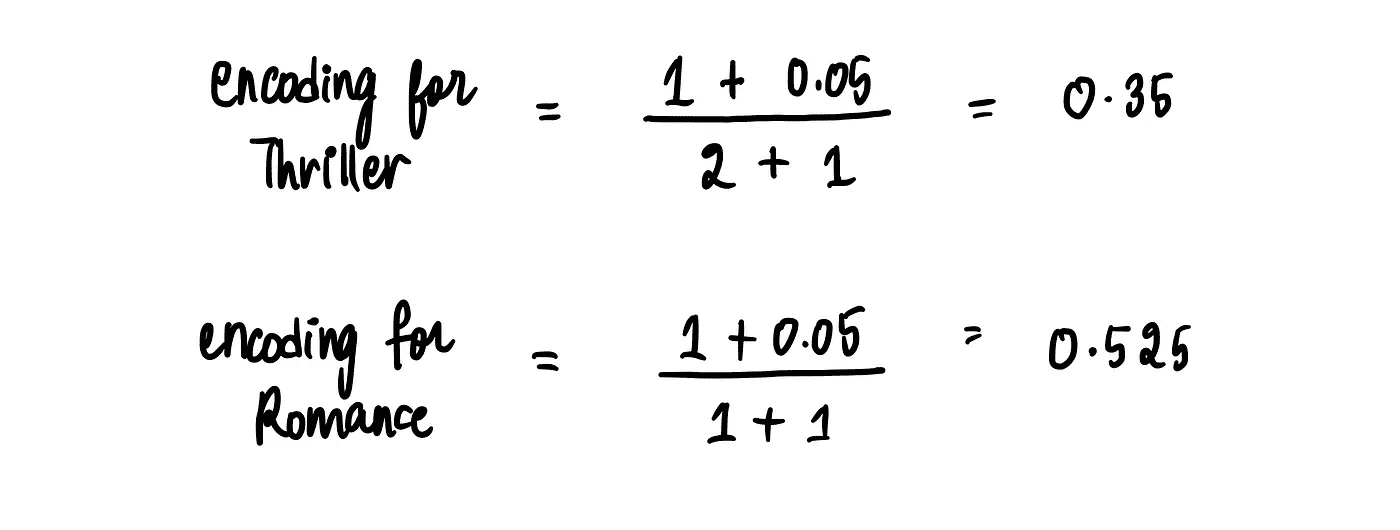 encoding for Thriller = (1 + 0.05) / (2 + 1) = 0.35
encoding for Romance = (1 + 0.05) / (1 + 1) = 0.525